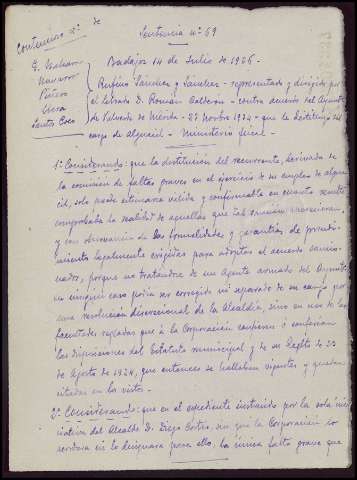 Contencioso nº de
Sentencia nº 69
Badajoz 14 de Julio de 1926
G.
Navarro
Piñero
Vera
Santos Coco
Rufino Sánchez y Sánchez - representado y dirigido por
el letrado D. Román Calderón - contra acuerdo del Ayunto
de Calzado de Mérida - 27 Novbre 1924 - que le destituyó del
cargo de alguacil - Ministerio fiscal -
1º Considerando: que la destitución del recurrente, derivada de
la comisión de faltas graves en el ejercicio de su empleo de algua
cil, solo puede estimarse valida y confirmable en cuanto resulte
comprobada la realidad de aquellas que tal sanción merecieran,
y con observancia de las formalidades y garantías de procedi-
miento legalmente exigidas para adoptar el acuerdo sancio-
nador, porque no tratándose de un Agente armado del Municipio
en ningún caso podía ser corregido ni separado de su cargo por
una resolución discrecional de la Alcaldía, sino en uso de las
facultades regladas que a la Corporación confieren o conferían
las disposiciones del Estatuto municipal y de su Reglto de 23
de Agosto de 1924, que entonces se hallaban vigentes y quedan
citadas en los vistos -
2º Considerando: que en el expediente instruido por la sola ini
ciativa del Alcalde D. Diego Cortés, sin que la Corporación lo
acordara ni lo designara para ello, la única falta grave que